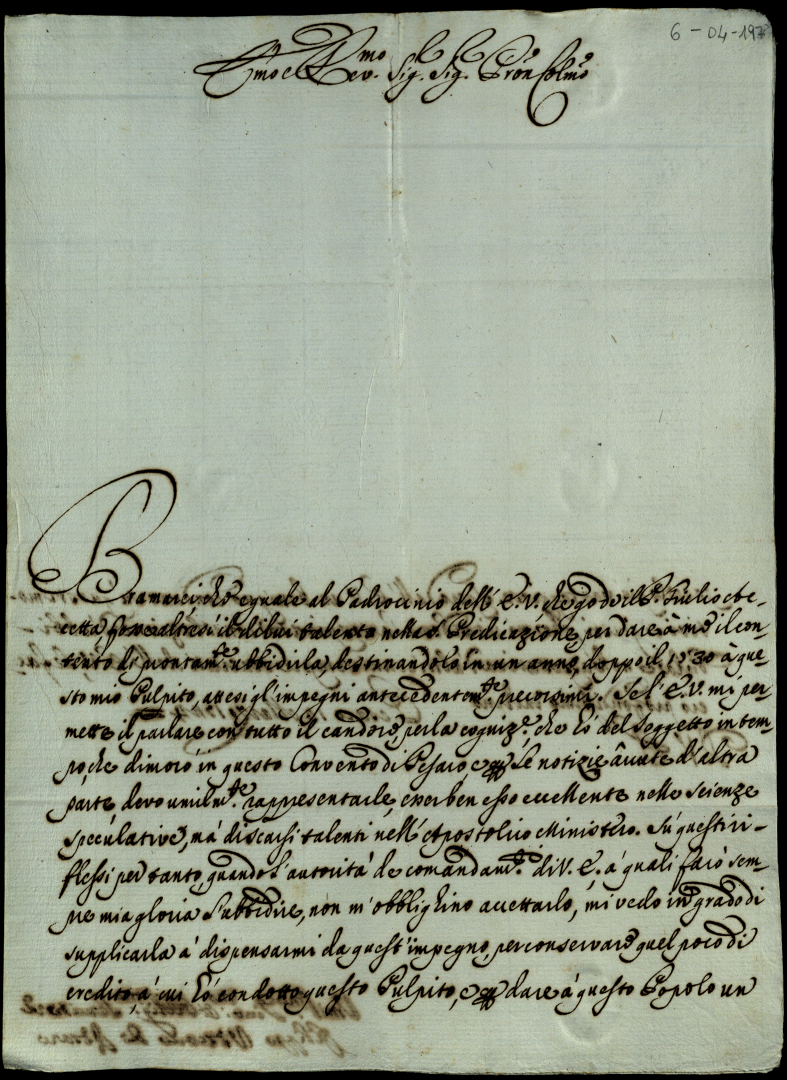 6-04-197
Emo e Rev.mo Sig. Sig. Pron Colmo
Bramarei che eguale al Padrocinio dell' E. V. che gode il P.
cetta fosse altresi il di lui talento nella S. Predicazione per dare à me il con-
tento di prontam.te ubbidirla, destinandolo in un anno doppo il 1730 à que-
sto mio Pulpito, attesi gl'impegni antecedentem.te precorsimi. Se l'E. V. mi per-
mette il parlare con tutto il candore per la cogniz.e, che hò del Soggetto in tem-
po, che dimorò in questo Convento di Pesaro, e per le notizie avute d'altra
parte devo umilm.te rappresentarle, esser ben esso eccellente nelle Scienze
speculative, mà di scarsi talenti nell'Apostolico Ministero. Sù questi ri-
flessi per tanto, quando l'autorità de comandam.ti di V. E. à quali farò sem-
pre mia gloria l'ubbidire, non m'obblighino accettarlo, mi vedo in grado di
supplicarla à dispensarmi da quest'impegno, per conservare quel poco di
credito, à cui hò condotto questo Pulpito, e per dare à questo Popolo un